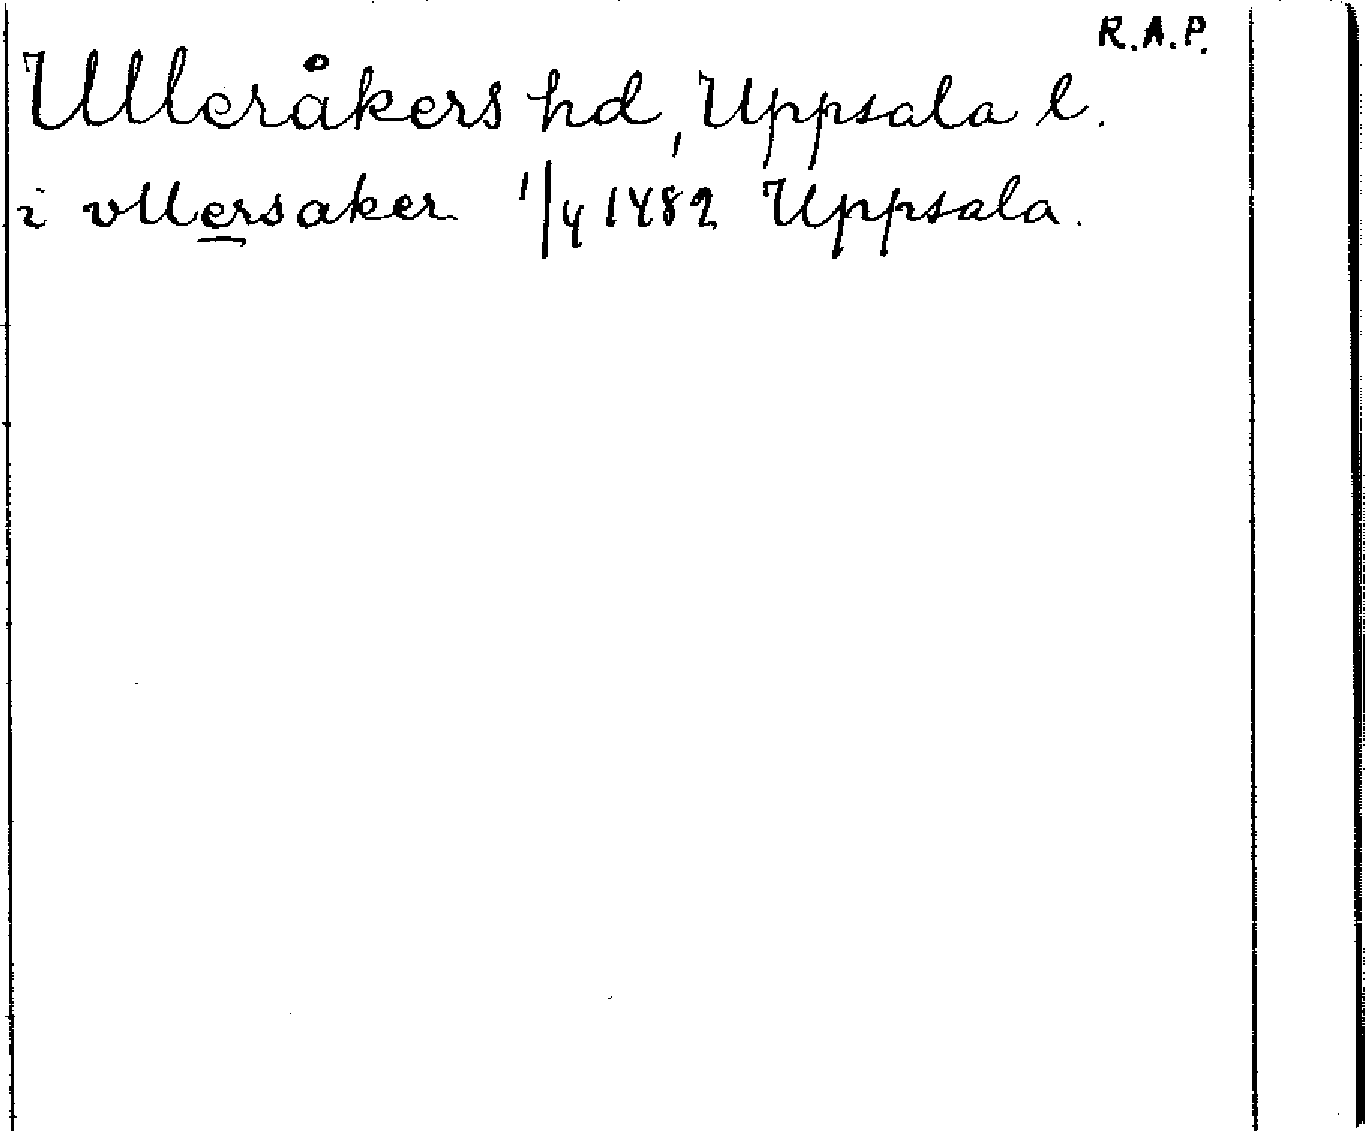 R.A.P.
Ulleråkers hd, Uppsala l.
i vllersaker 1/4 1482 Uppsala.